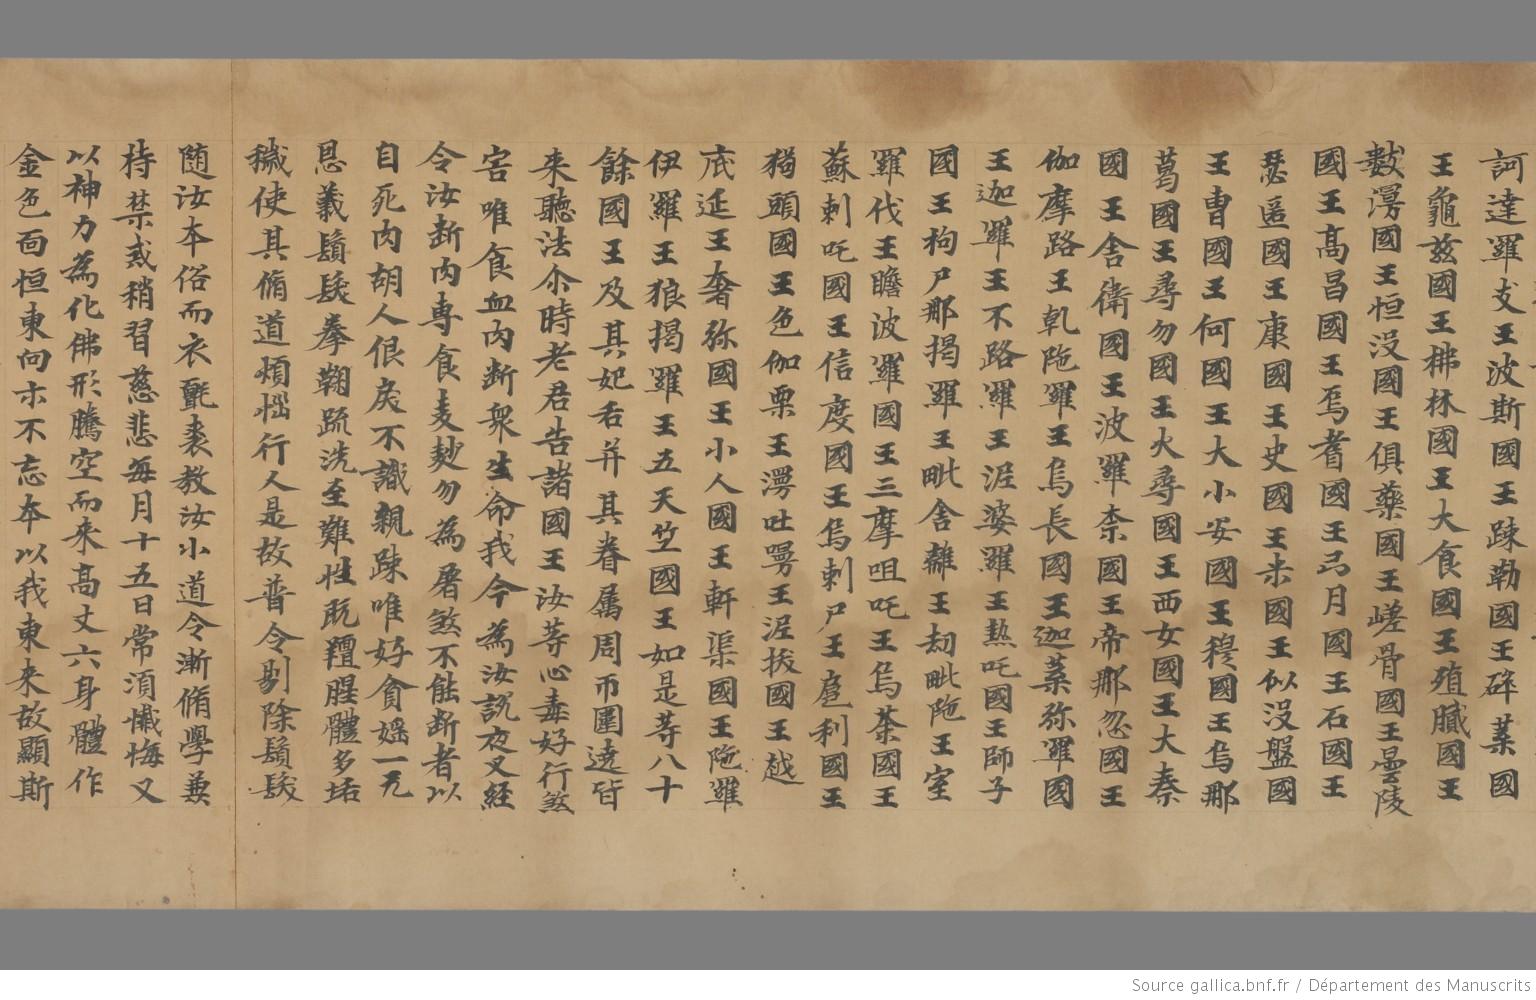 訶達羅支王波斯國王踈勒國王碎葉國
王龜兹國王拂林國王大食國王殖膩國王
數漫國王恒没國王俱藥國王嵯骨國王曇陵
國王高昌國王焉耆國王弓月國王石國王
瑟匿國王康國王史國王米國王似没盤國
王曹國王何國王大小安國王穆國王烏那
葛國王尋勿國王火尋國王西女國王大秦
國王舍衛國王波羅柰國王帝那忽國王
伽摩路王乹陁羅王烏長國王迦葉弥羅國
王迦羅王不路羅王泥婆羅王熱吒國王師子
國王枸尸那揭羅王毗舍離王劫毗陁王室
羅伐王瞻波羅國王三摩咀吒王烏荼國王
蘇剌吒國王信度國王烏剌尸王扈利國王
猲頭國王色伽栗王漫吐嘐王泥拔國王越
底延王奢弥國王小人國王軒渠國王陁羅
伊羅王狼揭羅王五天竺國王如是等八十
餘國王及其妃后并其眷属周帀圍遶皆
来聽法尒時老君告諸國王汝等心毒好行煞
害唯食血肉斷衆生命我今為汝說夜叉經
令汝断肉專食麦麨勿為屠煞不能断者以
自死肉胡人佷戾不識親踈唯好貪婬一无
恩義鬚髮拳鞠疏洗至難性既羶腥體多垢
穢使其脩道煩惱行人是故普令剔除鬚髮
随汝本俗而衣氈裘教汝小道令漸脩學兼
持禁戒稍習慈悲每月十五日常湏懴悔又
以神力為化佛形騰空而来高丈六身體作
金色面恒東向示不忘本以我東来故顯斯